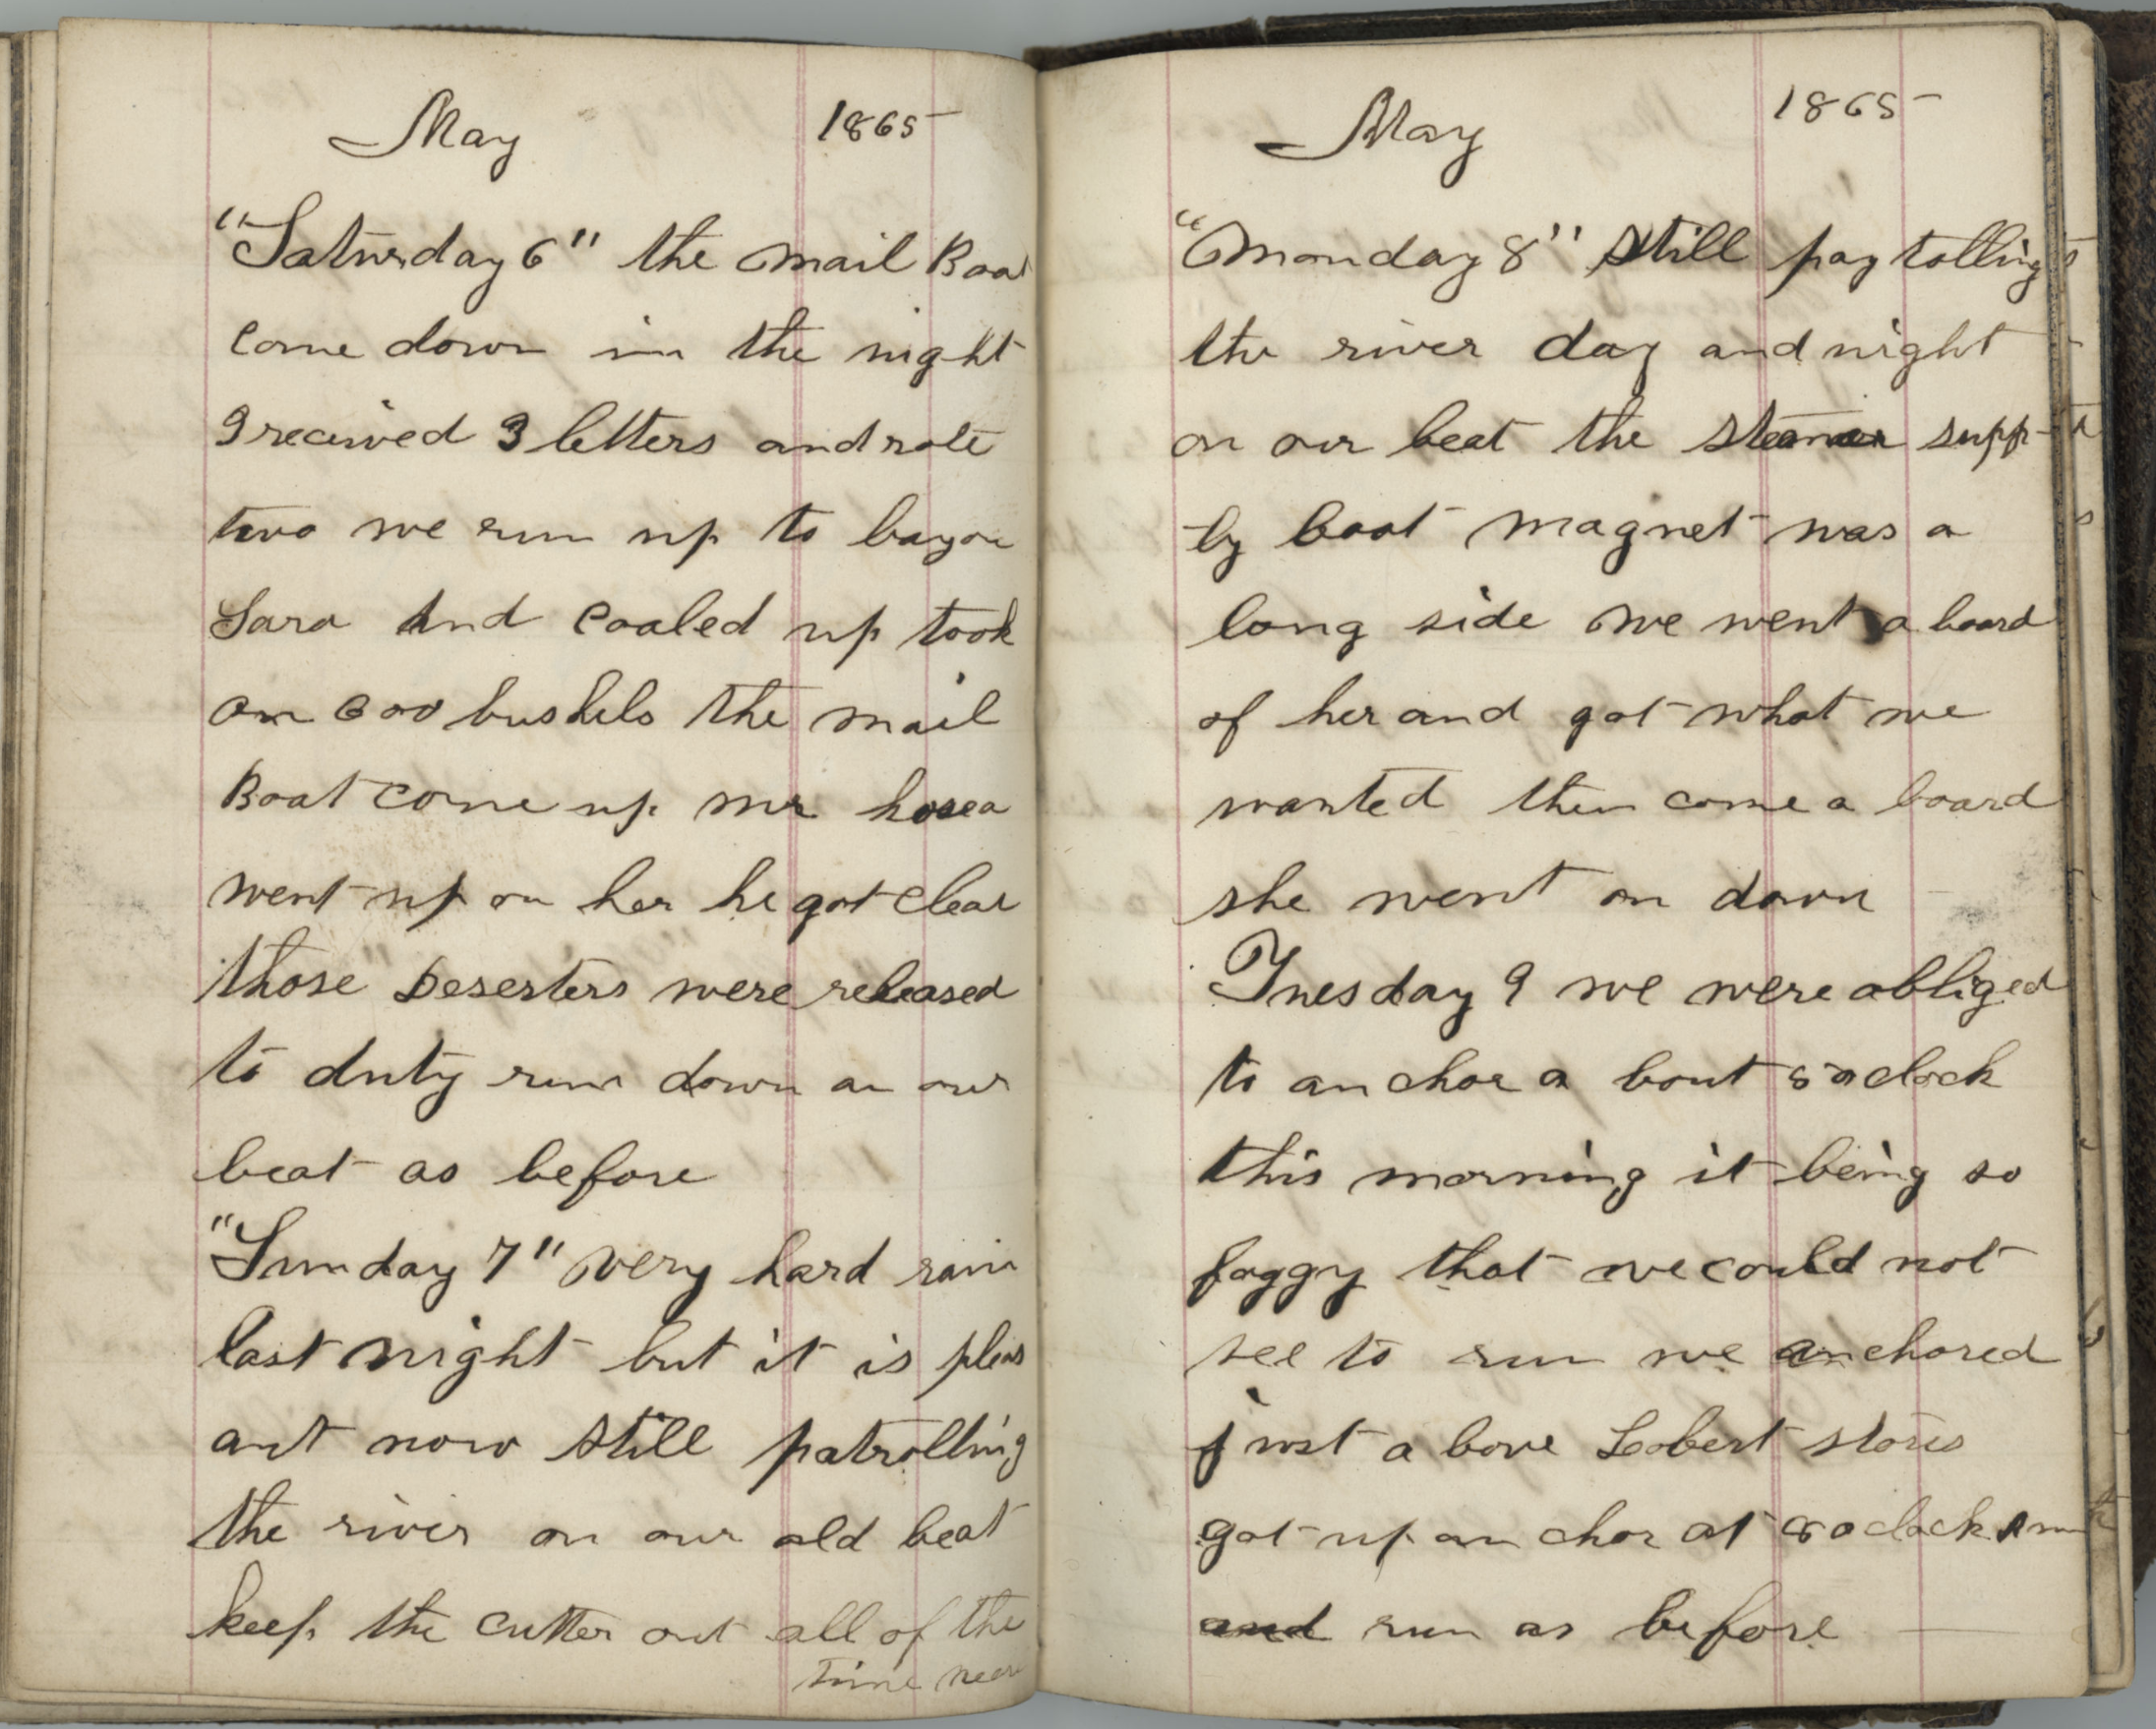 May 1865
"Saturday 6" the mail Boat
come down in the night
I received 3 letters and rote
two we run up to bayou
Sara and coaled up took
on 600 bushels the mail
Boat come up mr hosea
went up on her he got clear
those Deserters were released
to duty run down on our
beat as before
"Sunday 7" very hard rain
last night but it is pleas
ant now still patrolling
the river on our old beat
keep the cutter out all of the
time near
May 1865
"Monday 8" Still paytolling
the river day and night
on our beat the steamer supp-
ly boat magnet was a
long side we went a board
of her and got what we
wanted then come a board
she went on down
Tuesday 9 we were obliged
to anchor a bout 5 oclock
this morning it being so
foggy that we could not
see to run we anchored
just a bove Lobert stores
got up an chor at 8 oclock
and run as before